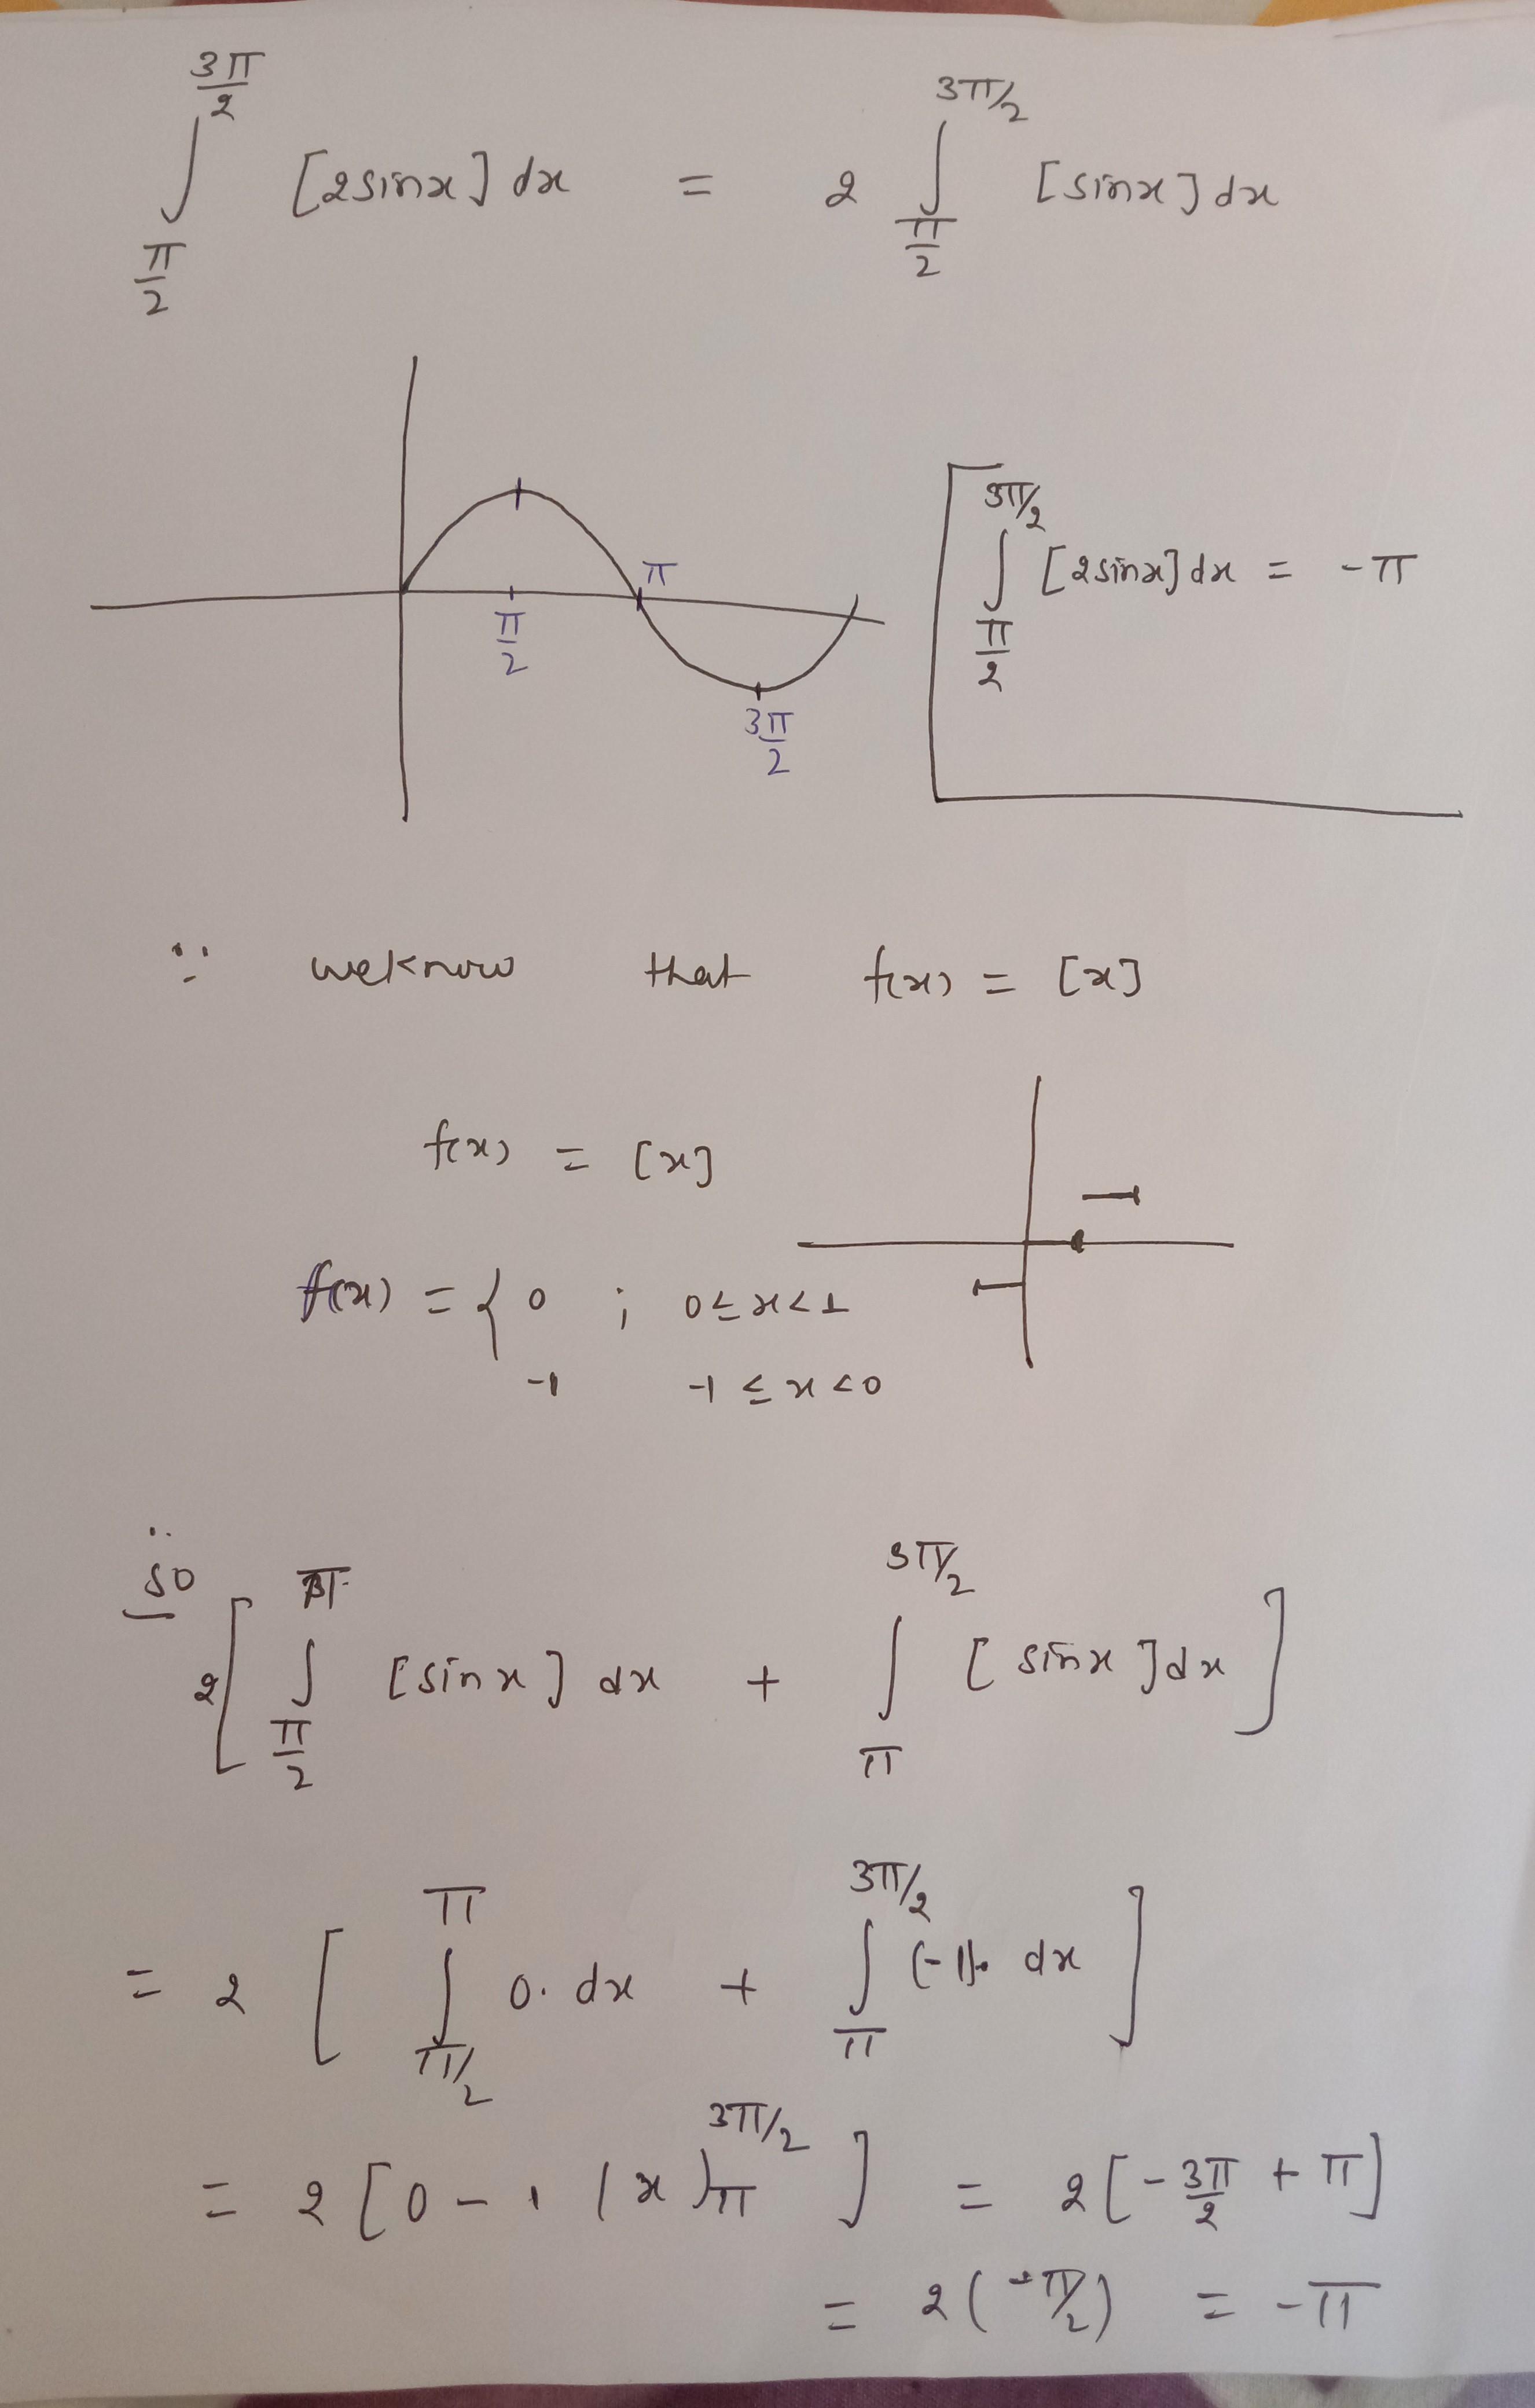 ∫_{π/2}^{3π/2} [2sinx] dx = 2 ∫_{π/2}^{3π/2} [sinx] dx
π
π/2
3π/2
∫_{π/2}^{3π/2} [2sinx] dx = -π
∵ weknow that f(x) = [x]
f(x) = [x]
f(x) = { 0 ; 0≤x<1
-1 -1≤x<0
∴ so
2[ ∫_{π/2}^{π} [sinx] dx + ∫_{π}^{3π/2} [sinx] dx ]
= 2 [ ∫_{π/2}^{π} 0. dx + ∫_{π}^{3π/2} (-1). dx ]
= 2 [0 - 1 (x)_{π}^{3π/2} ] = 2[-3π/2 + π]
= 2(-π/2) = -π